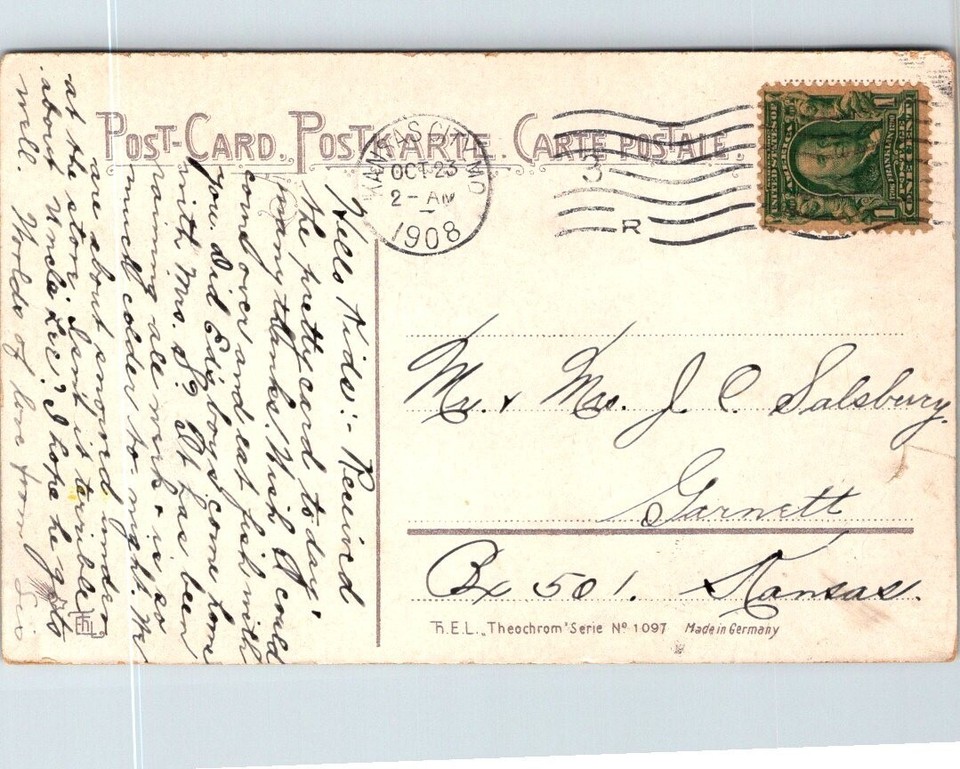 POST-CARD. POSTKARTE. CARTE POSTALE.
KANSAS CITY, MO
OCT 23
2-AM
1908
3
R
UNITED STATES OF AMERICA
FRANKLIN
ONE CENT
1 1
Hello Kids:- Received
the pretty card to-day,
many thanks. Wish I could
come over and eat fish with
you. Did Edig boys come home
with Mrs. S? It has been
raining all week & is so
much colder to-night. We
are about snowed under
at the store. Isn't it terrible
about Uncle Lee? I hope he gets
well. Worlds of love from
Mr. & Mrs. J. C. Salsbury,
Garnett
Bx 501. Kansas.
T.H.E.L. „Theochrom" Serie No 1097 Made in Germany